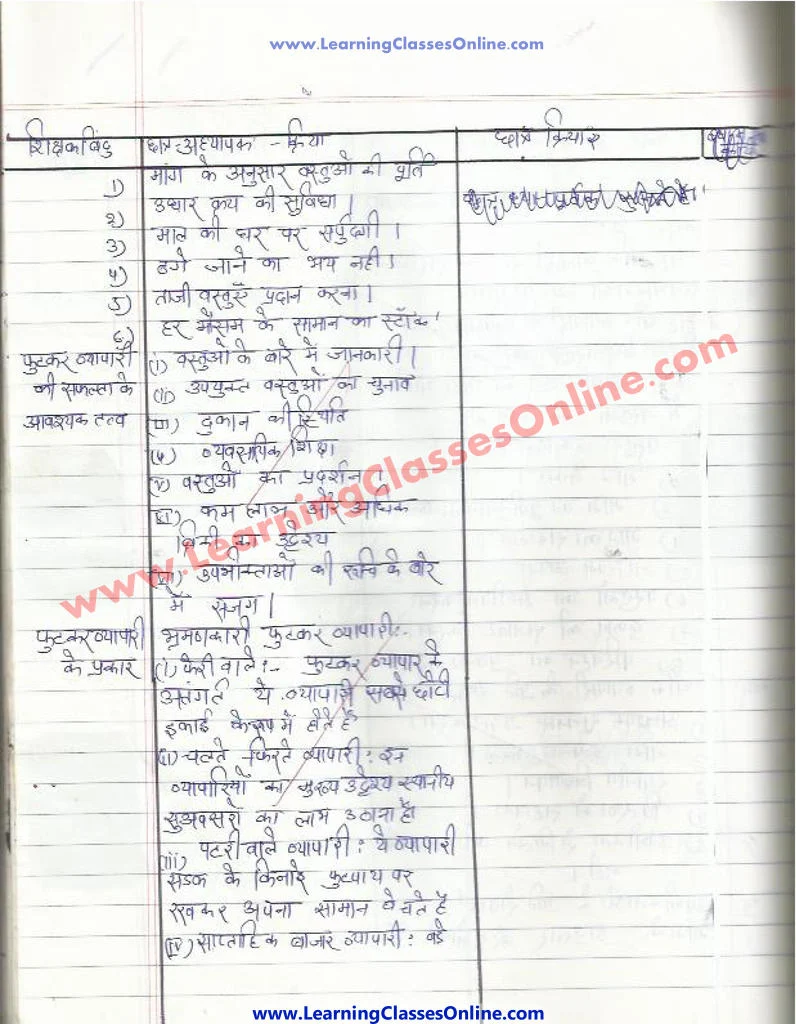 www.LearningClassesOnline.com
शिक्षक बिंदु छात्र-अध्यापक - क्रिया छात्र क्रियाएं
मांग के अनुसार वस्तुओं की पूर्ति
1) उधार क्रय की सुविधा।
2) माल की घर पर सर्पुदगी।
3) ठगे जाने का भय नही।
4) ताजी वस्तुएँ प्रदान करना।
5) हर मौसम के सामान का स्टॉक।
6)
फुटकर व्यापारी (i) वस्तुओं के बारे में जानकारी।
की सफलता के (ii) उपयुक्त वस्तुओं का चुनाव
आवश्यक तत्व (iii) दुकान की स्थिति
(iv) व्यवसायिक शिक्षा
(v) वस्तुओं का प्रदर्शन।
(vi) कम लाभ और अधिक
बिक्री का उद्देश्य
(vii) उपभोक्ताओं की रूचि के बारे
में सजग।
www.LearningClassesOnline.com
फुटकर व्यापारी भ्रमणकारी फुटकर व्यापारी:-
के प्रकार (i) फेरी वाले:- फुटकर व्यापार के
अंतगर्त ये व्यापारी सबसे छोटी
इकाई के रूप में होते है
(ii) चलते फिरते व्यापारी: इन
व्यापारियों का मुख्य उद्देश्य स्थानीय
सुअवसरों का लाभ उठाना है।
(iii) पटरी वाले व्यापारी: ये व्यापारी
सडक के किनारे फुटपाथ पर
रखकर अपना सामान बेचते है
(iv) साप्ताहिक बाजार व्यापारी: बडे
www.LearningClassesOnline.com